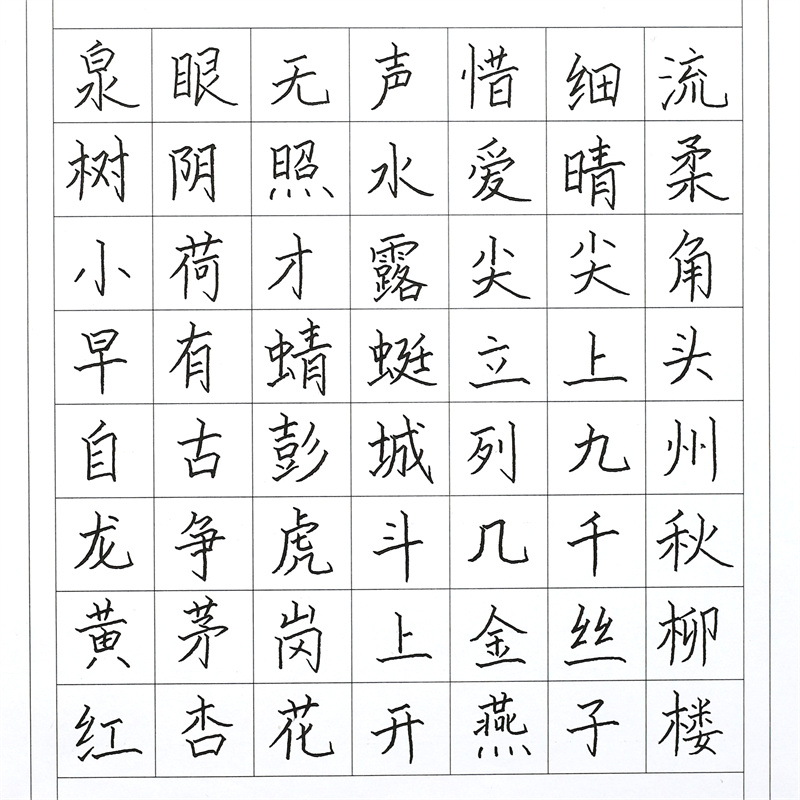 泉眼无声惜细流
树阴照水爱晴柔
小荷才露尖尖角
早有蜻蜓立上头
自古彭城列九州
龙争虎斗几千秋
黄茅岗上金丝柳
红杏花开燕子楼